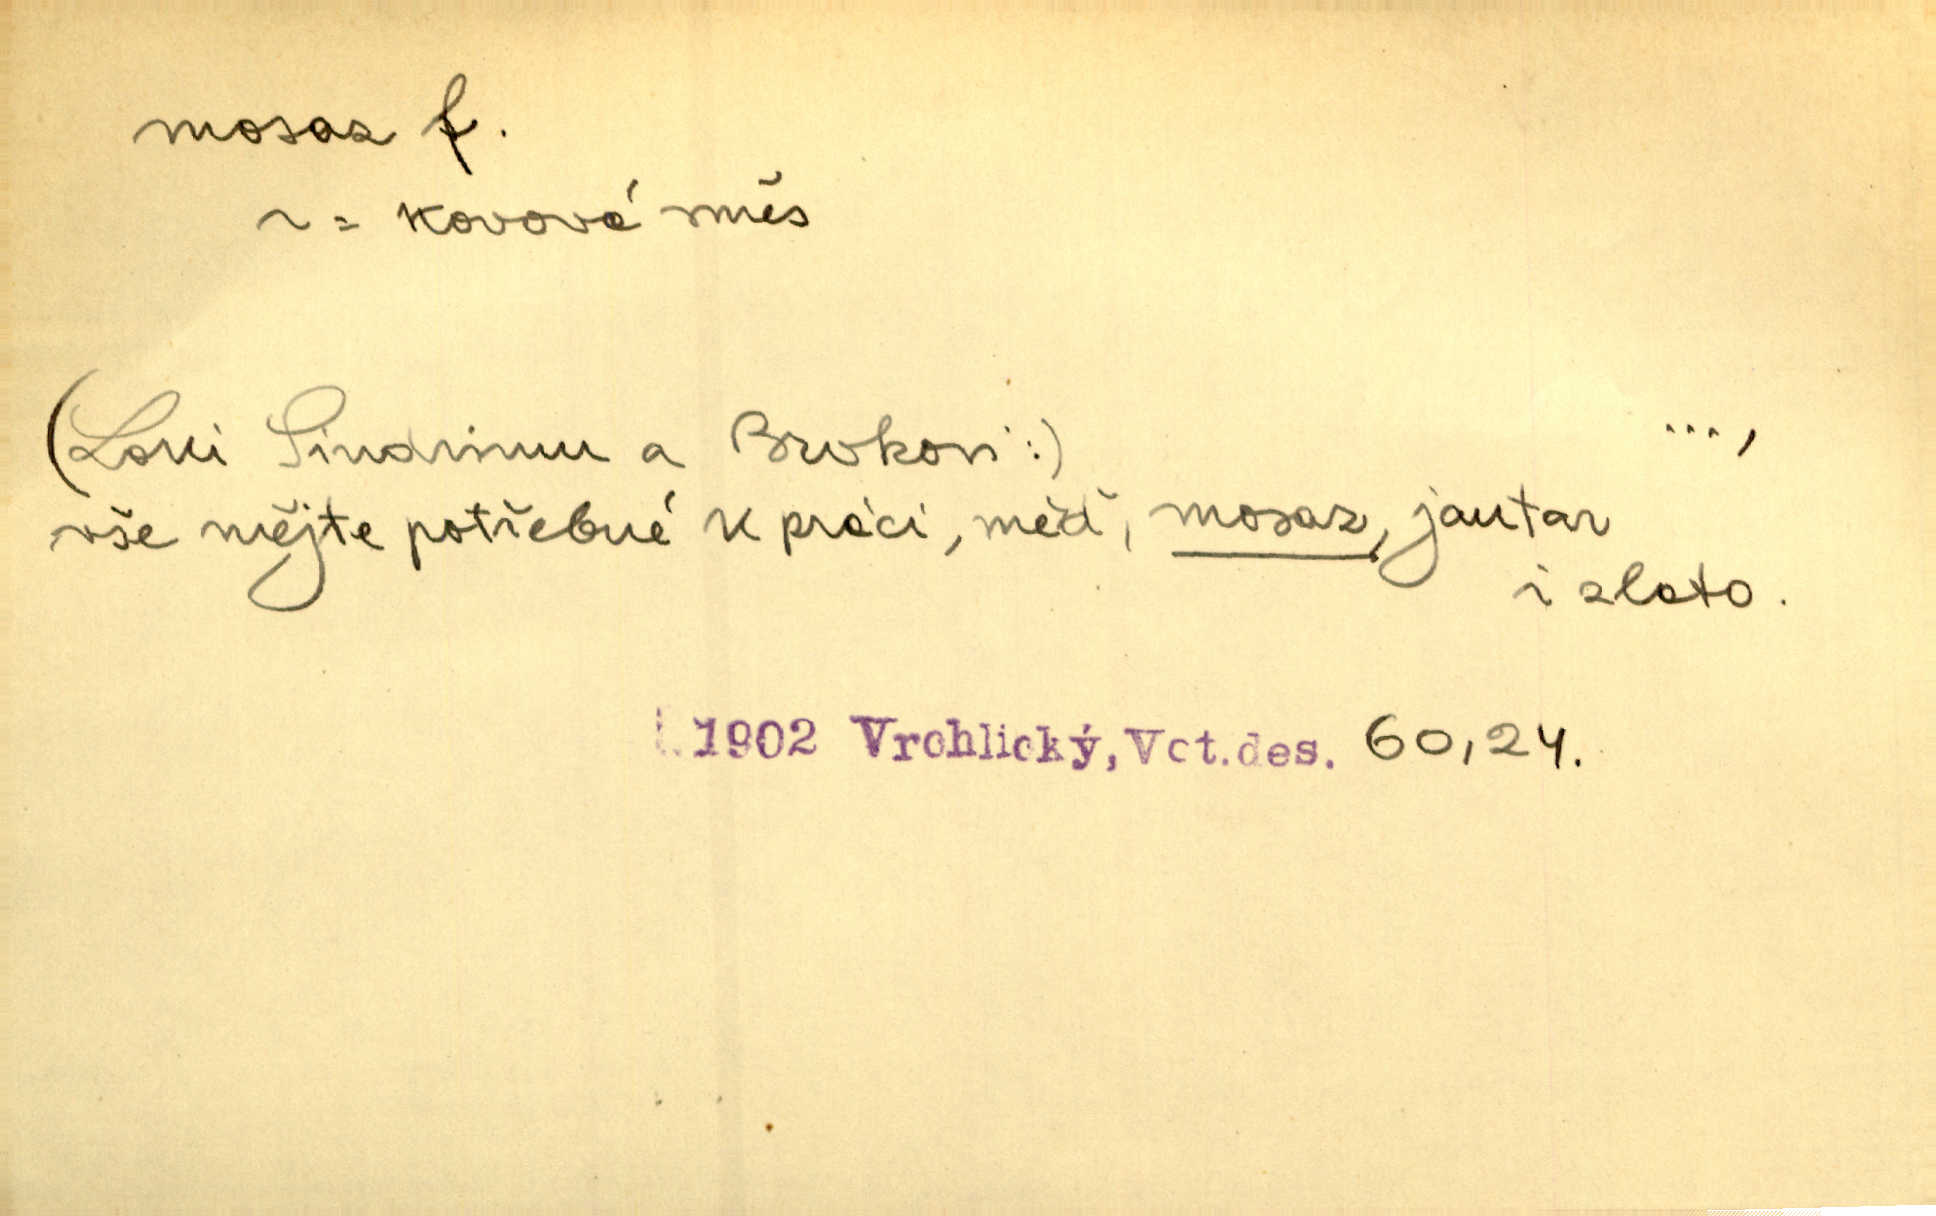 mosaz f.
~ = kovová směs
(Loki Sindrimu a Brokovi:) ...,
vše mějte potřebné k práci, měď, mosaz, jantar
i zlato.
1902 Vrchlický, Vct.des. 60,24.